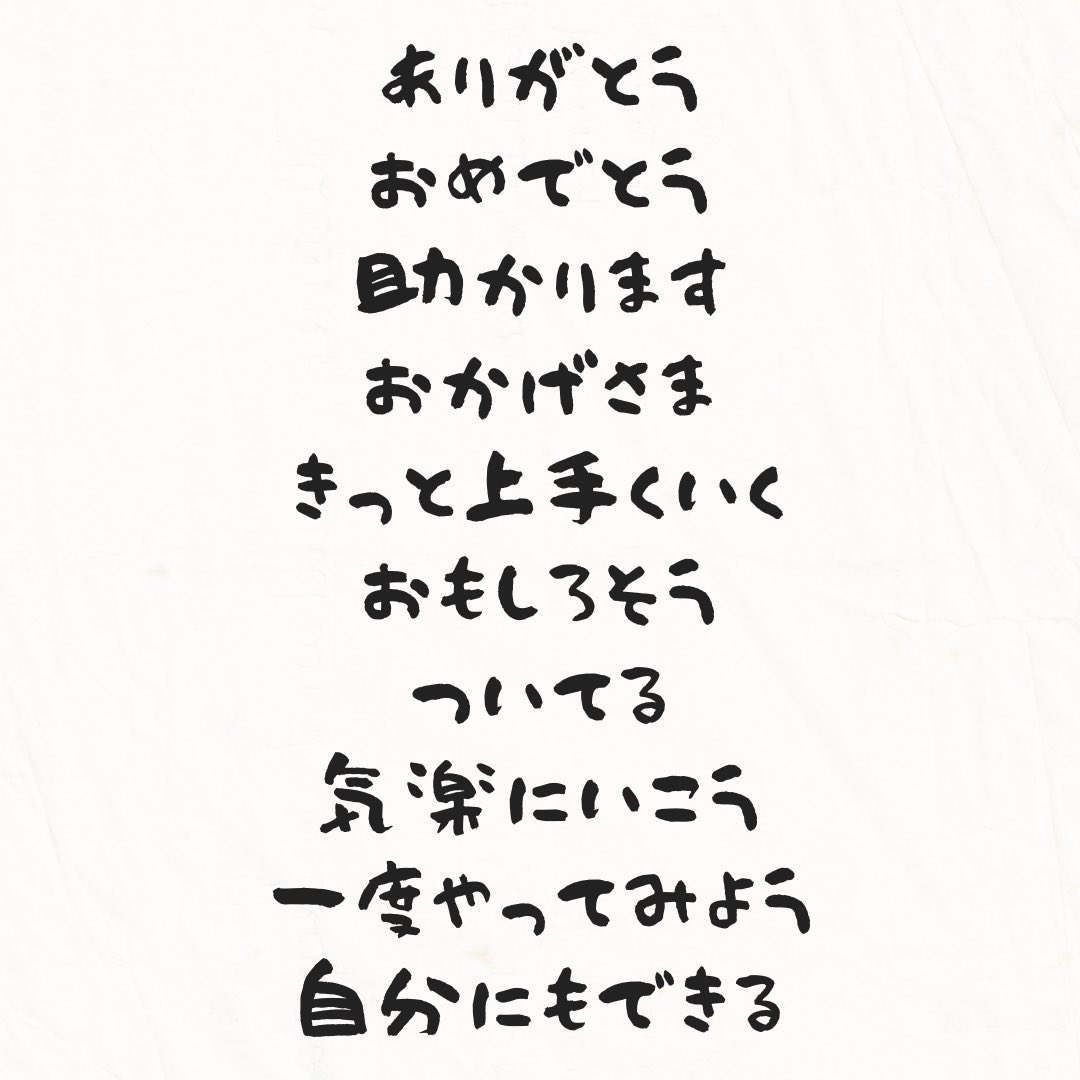 ありがとう
おめでとう
助かります
おかげさま
きっと上手くいく
おもしろそう
ついてる
気楽にいこう
一度やってみよう
自分にもできる